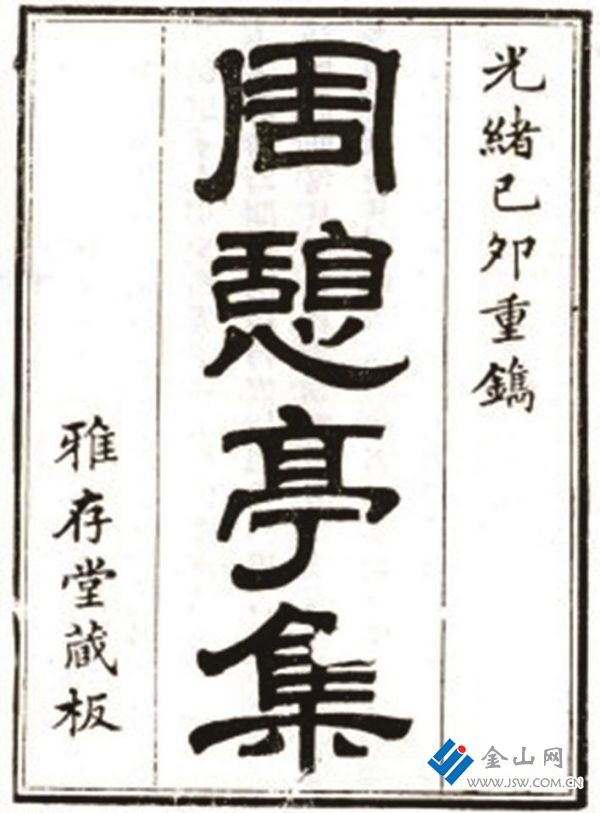 光緒己卯重鐫
周憩亭集
雅存堂藏板
金山网
www.jsw.com.cn